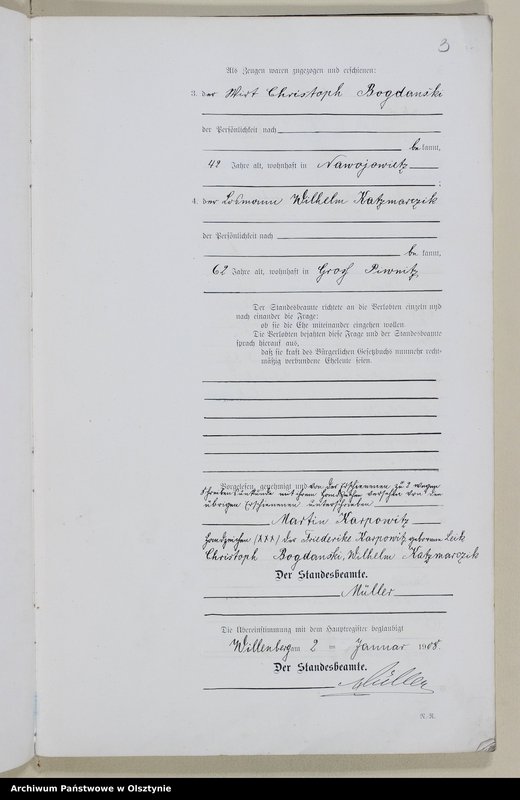 3
Als Zeugen waren zugezogen und erschienen:
3. der Wirt Christoph Bogdanski
der Persönlichkeit nach
be kannt,
42 Jahre alt, wohnhaft in Nawojowietz
;
4. der Losmann Wilhelm Katzmarczik
der Persönlichkeit nach
be kannt,
62 Jahre alt, wohnhaft in Groß Piwnitz
Der Standesbeamte richtete an die Verlobten einzeln und
nach einander die Frage:
ob sie die Ehe miteinander eingehen wollen.
Die Verlobten bejahten diese Frage und der Standesbeamte
sprach hierauf aus,
daß sie kraft des Bürgerlichen Gesetzbuchs nunmehr recht-
mäßig verbundene Eheleute seien.
Vorgelesen, genehmigt und von der Erschienenen zu 2 wegen
Schreibensunkunde mit ihrem Handzeichen versehen von den
übrigen Erschienenen unterschrieben
Martin Karpowitz
Handzeichen (XXX) der Friederike Karpowitz geborene Leik
Christoph Bogdanski, Wilhelm Katzmarczik
Der Standesbeamte.
Müller
Die Übereinstimmung mit dem Hauptregister beglaubigt
Willenberg am 2 ten Januar 1908.
Der Standesbeamte.
Müller
N. R.
Archiwum Państwowe w Olsztynie